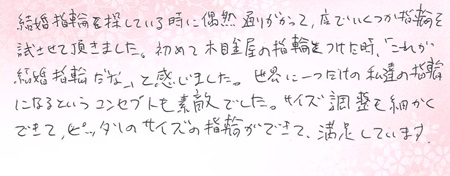 結婚指輪を探している時に偶然通りがかって、店でいくつか指輪を
試させて頂きました。初めて木目金屋の指輪をつけた時、「これが
結婚指輪だな」と感じました。世界に一つだけの私達の指輪
になるというコンセプトも素敵でした。サイズ調整も細かく
できて、ピッタリのサイズの指輪ができて、満足しています。